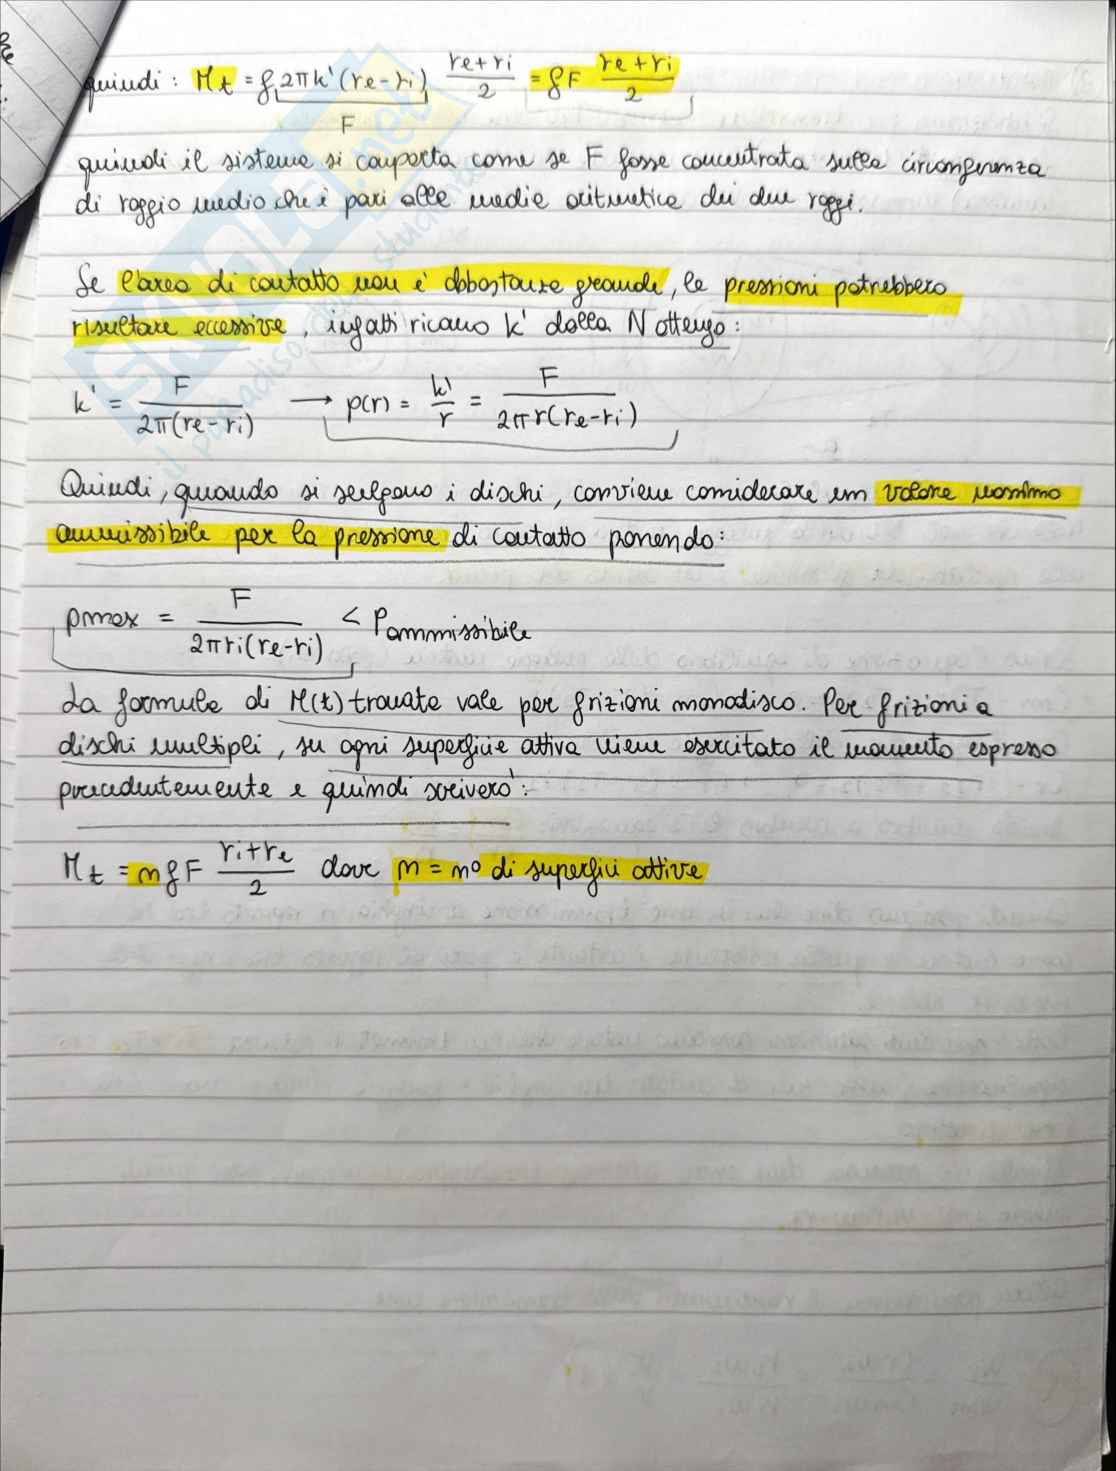 quindi: Mt = f 2πk'(re-ri) (re+ri)/2 = fF (re+ri)/2
F
quindi il sistema si comporta come se F fosse concentrata sulla circonferenza
di raggio medio che è pari alla media aritmetica dei due raggi.
Se l'area di contatto non è abbastanza grande, le pressioni potrebbero
risultare eccessive, infatti ricavo k' dalla N ottengo:
k' = F/(2π(re-ri)) → p(r) = k'/r = F/(2πr(re-ri))
Quindi, quando si scelgono i dischi, conviene considerare un valore massimo
ammissibile per la pressione di contatto ponendo:
pmax = F/(2πri(re-ri)) < Pammissibile
La formula di M(t) trovata vale per frizioni monodisco. Per frizioni a
dischi multipli, su ogni superficie attiva viene esercitato il momento espresso
precedentemente e quindi scriverò:
Mt = nfF (ri+re)/2 dove n = nº di superfici attive
SKUOLA.net
il paradiso dello studente